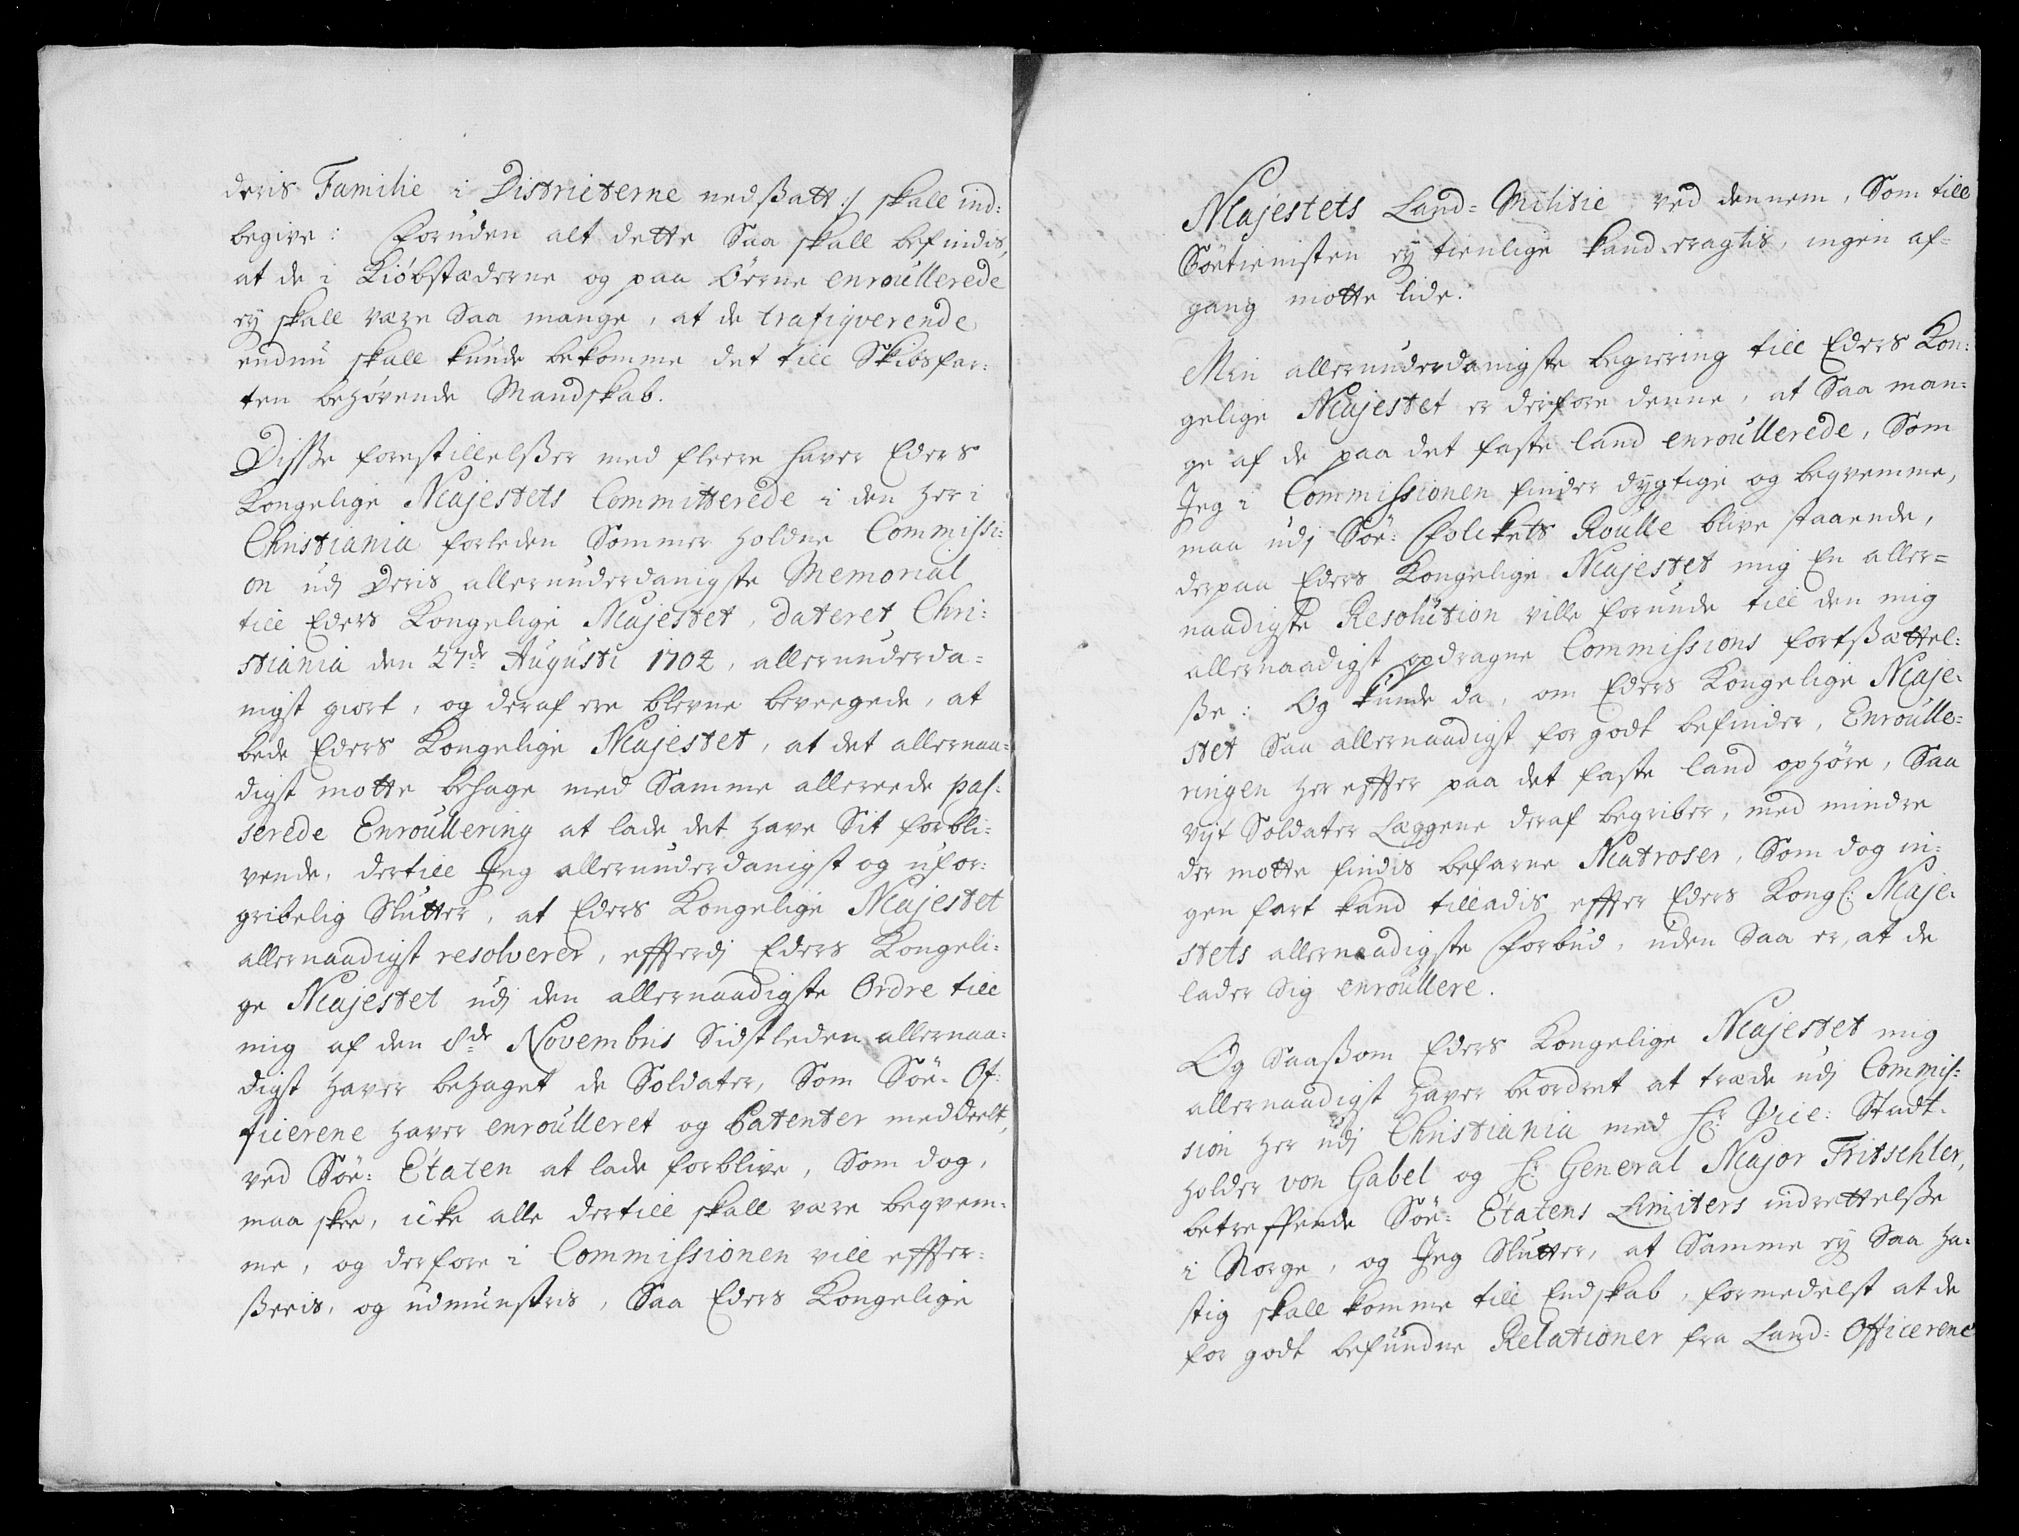 deris Familie i Districterne nedßatt :/ skall ind-
begive: Foruden alt dette Saa skall befindis,
at de i Kiöbstæderne og paa Öerne enroullerede
ey skall være Saa mange, at de trafiqverende
endnu skall kunde bekomme det till Skibsfar-
ten behøvende Mandskab.
Disße forestillelßer med fleere haver Eders
Kongelige Majestets Committerede i den her i
Christiania forleden Sommer holdne Commissi-
on udj Deris allerunderdanigste Memorial
till Eders Kongelige Majestet, dateret Chri-
stiania den 27de Augusti 1702, allerunderda-
nigst giort, og deraf ere blevne beveegede, at
bede Eders Kongelige Majestet, at det allernaa-
digst motte behage med Samme allereede pas-
serede Enroullering at lade det have Sit forbli-
vende, dertill Jeg allerunderdanigst og ufor-
gribelig Slutter, at Eders Kongelige Majestet
allernaadigst resolverer, effterdj Eders Kongeli-
ge Majestet udj den allernaadigste Ordre till
mig af den 8de Novembris Sidstleden allernaa-
digst haver behaget de Soldater, Som Söe- Of-
ficerene haver enroulleret og Patenter meddeelt,
ved Söe- Etaten at lade forblive, Som dog,
maa skee, icke alle dertill skall være beqvem-
me, og derfore i Commissionen vill effter-
ßeeis, og udmunstris, Saa Eders Kongelige
Majestets Land- Militie, ved dennem, Som till
Söetienisten ey tienlige kand eragtis, ingen af-
gang motte lide.
Min allerunderdanigste begiering till Eders Kon-
gelige Majestet er derfore denne, at Saa man-
ge af de paa det faste land enroullerede, Som
Jeg i Commissionen finder dygtige og beqvemme,
maa udj Söe- Folckets Roulle blive staaende,
derpaa Eders Kongelige Majestet mig En aller-
naadigste Resolution ville forunde till den mig
allernaadigst opdragne Commissions fortßættel-
ße: Og kunde da, om Eders Kongelige Maje-
stet Saa allernaadigst for godt befinder, Enroulle-
ringen her effter paa det faste land ophøre, Saa
vijt Soldater Læggene deraf begriber, med mindre
der motte findis befarne Matroser, Som dog in-
gen fart kand tilladis effter Eders Kongl: Maje-
stets allernaadigste Forbud, uden Saa er, at de
lader Sig enroullere.
Og Saaßom Eders Kongelige Majestet mig
allernaadigst haver beordret at træde udj Commis-
sion her udj Christiania med Hr: Vice- Stadt-
holder von Gabel og Hr: General Major Tritschler,
betreffende Söe- Etatens Limiters indrettelße
i Norge, og Jeg Slutter, at Samme ey Saa ha-
stig skall komme till Endskab, formedelst at de
for godt befundne Relationer fra Land- Officerene